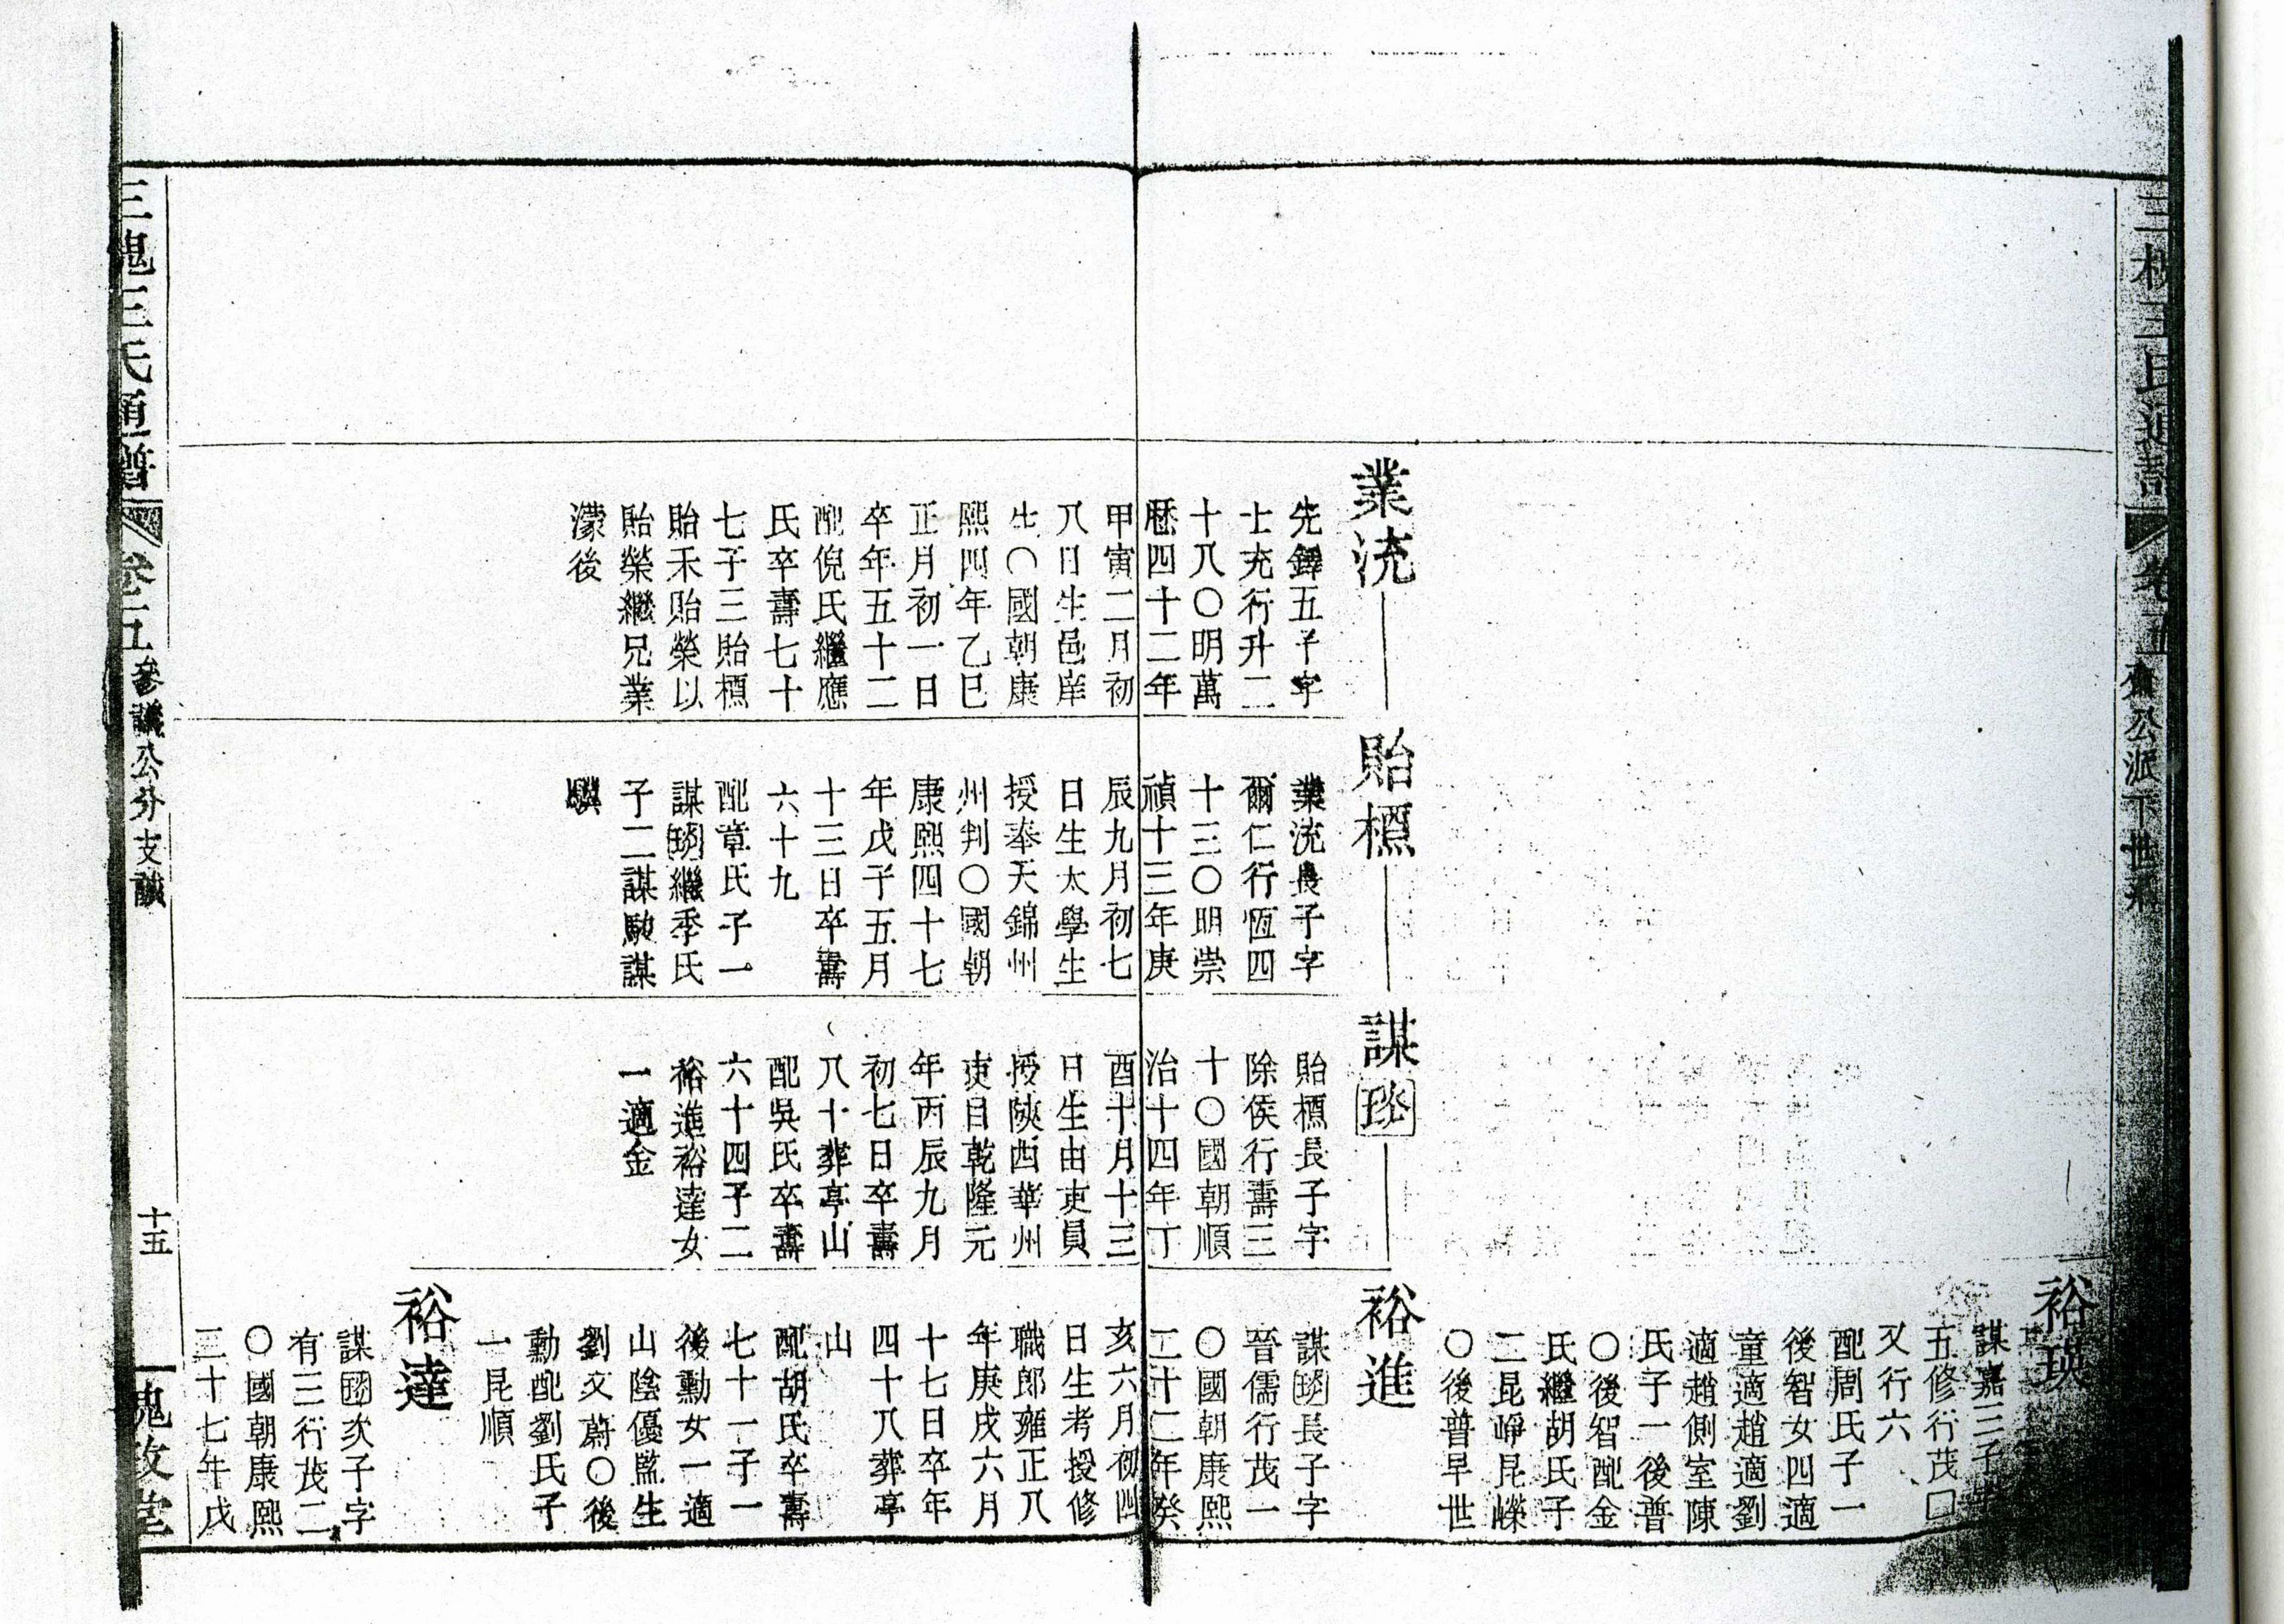 三槐王氏通譜
卷五
公派下世系
業洸
先鐸五子字
士充行升二
十八〇明萬
歷四十二年
甲寅二月初
八日生邑庠
生〇國朝康
熙四年乙巳
正月初一日
卒年五十二
配倪氏繼應
氏卒壽七十
七子三貽標
貽禾貽榮以
貽榮繼兄業
濛後
貽標
業洸長子字
爾仁行恆四
十三〇明崇
禎十三年庚
辰九月初七
日生太學生
授奉天錦州
州判〇國朝
康熙四十七
年戊子五月
十三日卒壽
六十九
配章氏子一
謀琰繼季氏
子二謀駿謀
驥
謀琰
貽標長子字
除侯行壽三
十〇國朝順
治十四年丁
酉十月十三
日生由吏員
授陝西華州
吏目乾隆元
年丙辰九月
初七日卒壽
八十葬亭山
配吳氏卒壽
六十四子二
裕進裕達女
一適金
裕瑛
謀嘉三子
五修行茂□
又行六
配周氏子一
後智女四適
童適趙適劉
適趙側室陳
氏子一後普
〇後智配金
氏繼胡氏子
二昆崢昆嶸
〇後普早世
裕進
謀琰長子字
晉儒行茂一
〇國朝康熙
二十二年癸
亥六月初四
日生考授修
職郎雍正八
年庚戌六月
十七日卒年
四十八葬亭
山
配胡氏卒壽
七十一子一
後勳女一適
山陰優監生
劉文蔚〇後
勳配劉氏子
一昆順
裕達
謀琰次子字
有三行茂二
〇國朝康熙
三十七年戊
三槐王氏通譜
卷五
參議公分支
十五
槐政堂